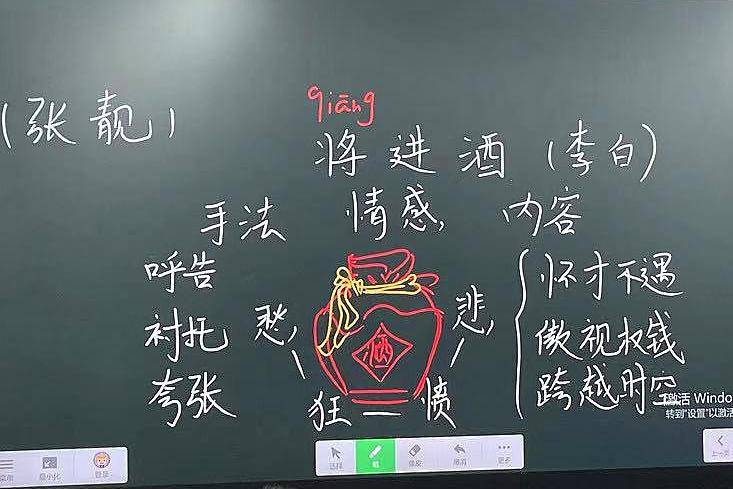 qiāng
(张靓)
将进酒(李白)
手法 情感 内容
呼告 怀才不遇
衬托 愁 酒 悲 傲视权钱
夸张 狂—愤 跨越时空
激活 Windo
转到"设置"以激活
最小化 登录 选择 笔 板皮 撤消 更多 上一页